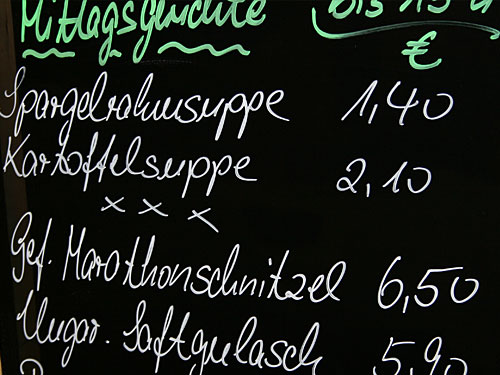 Mittagsgerichte bis 15 U
€
Spargelrahmsuppe 1,40
Kartoffelsuppe 2,10
x x x
Gef. Marathonschnitzel 6,50
Ungar. Saftgulasch 5,90